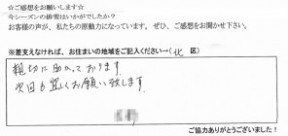 ☆ご感想をお願いします☆
今シーズンの排雪はいかがでしたか?
お客様の声が、私たちの原動力になっています。ぜひ、ご感想をお聞かせ下さい。
※差支えなければ、お住まいの地域をご記入ください→(北 区)
親切に やって おります
次回も宜しくお願い致します
ご協力ありがとうございました!